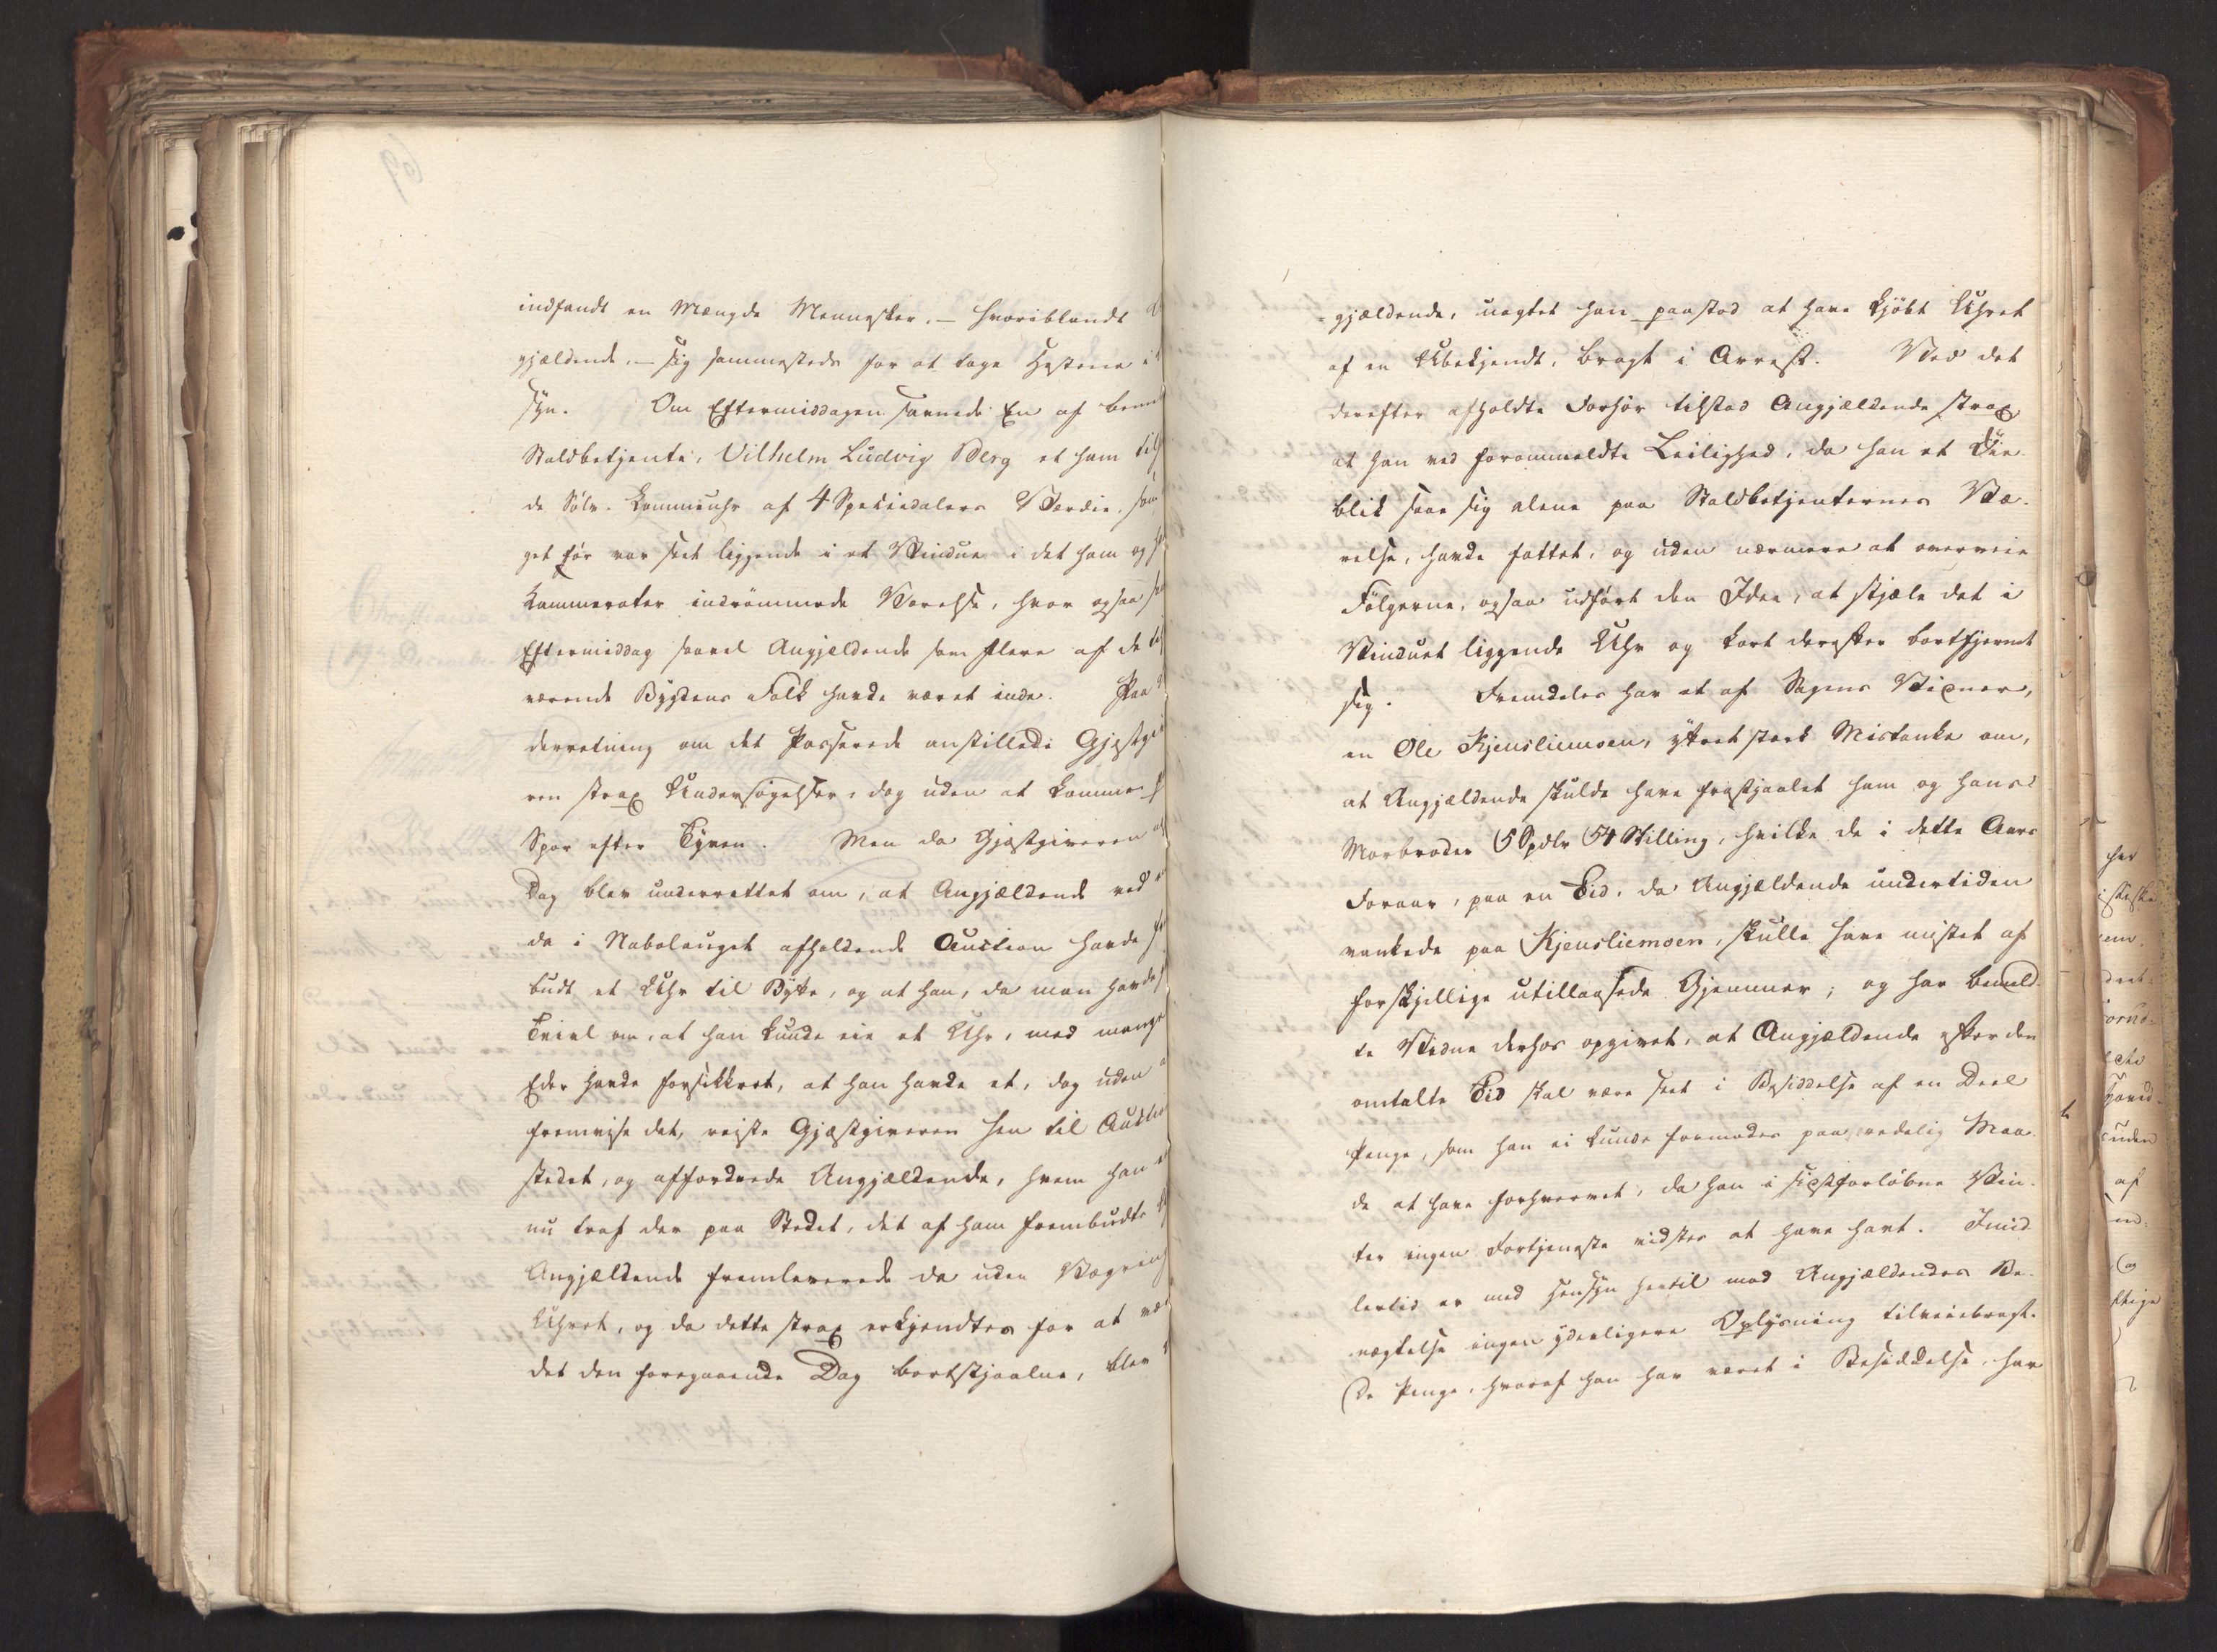 indfandt en Mængde Mennesker, – hvoriblandt
gjældende, – sig sammesteds for at tage Hestene i
syn. Om Eftermiddagen savnede En af bem
Staldbetjente, Vilhelm Ludvig Berg et ham til
de Sølv-Lommeuhr af 4 Speciedalers Værdie, som
get før var seet liggende i et Vindue i det ham og
Kammerater indrømmede Værelse, hvor ogsaa
Eftermiddag saavel Angjældende som flere af de
værende Bygdens Folk havde været inde. Paa
derretning om det Passerede anstillede Gjæstgi
ren strax Undersøgelser, dog uden at komme
Spor efter Tyven. Men da Gjæstgiveren
Dag blev underrettet om, at Angjældende ved
da i Nabolauget afholdende Auction havde
budt et Uhr til Bytte, og at han, da man havde
Tvivl om, at han kunde eie et Uhr, med mange
Eder havde forsikkret, at han havde et, dog uden
fremvise det, reiste Gjæstgiveren hen til Auctio
stedet, og affordrede Angjældende, hvem han
nu traf der paa Stedet, det af ham frembudte
Angjældende fremleverede da uden Vægring
Uhret, og da dette strax erkjendtes for at væ
det den foregaaende Dag bortstjaalne, blev
gjældende, uagtet han paastod at have kjöbt Uhret
af en Ubekjendt, bragt i Arrest. Ved det
derefter afholdte Forhör tilstod Angjældende strax
at han ved forommeldte Leilighed, da han et Øie-
blik saae sig alene paa Staldbetjenternes Væ-
relse, havde fattet, og uden nærmere at overveie
Fölgerne, ogsaa udfört den Idee, at stjæle det i
Vinduet liggende Uhr og kort derefter bortfjernet
sig. Fremdeles har et af Sagens Vidner,
en Ole Kjensliemoen, yttret stærk Mistanke om,
at Angjældende skulde have frastjaalet ham og hans
Morbroder 5 Spdlr 54 Skilling, hvilke de i dette Aars
Foraar, paa en Tid, da Angjældende undertiden
vankede paa Kjensliemoen, skulle have mistet af
forskjellige utillaasede Gjemmer; og har bemeld-
te Vidne derhos opgivet, at Angjældende efter den
omtalte Tid skal være seet i Besiddelse af en Deel
Penge, som han ei kunde formodes paa redelig Maa-
de at have forhvervet, da han i sidstforløbne Vin-
ter ingen Fortjeneste vidstes at have havt. Imid-
lertid er med Hensyn hertil mod Angjældendes Be-
nægtelse ingen yderligere Oplysning tilveiebragt.
De Penge, hvoraf han har været i Besiddelse, har